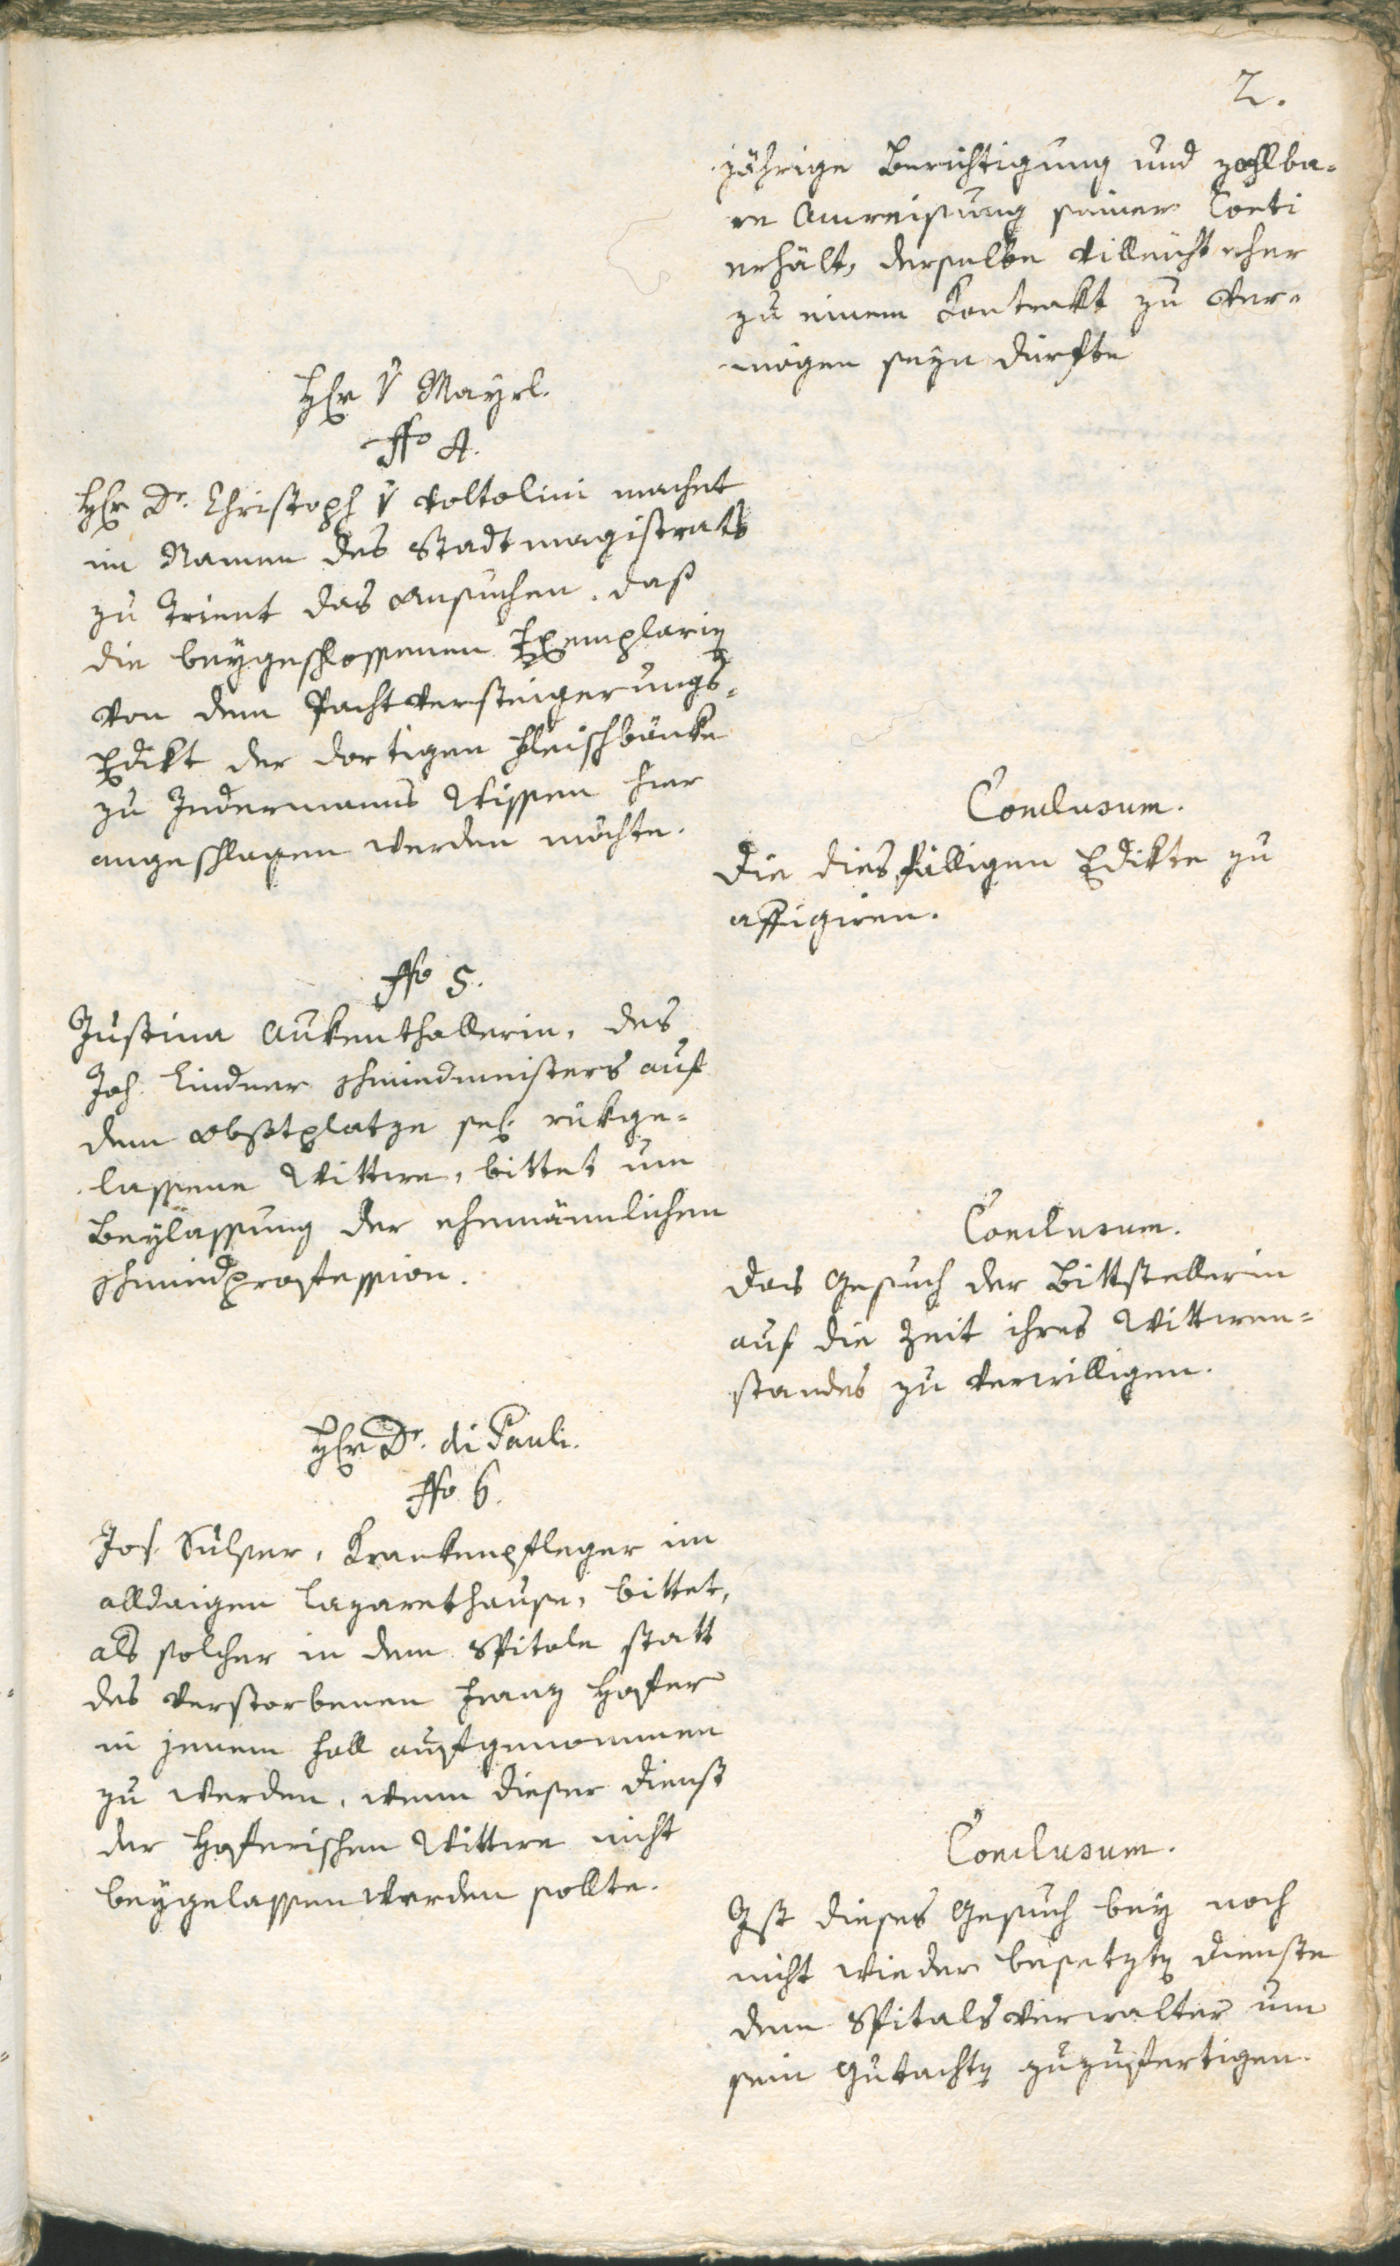 2.
jährige Berichtigung und zahlba-
re Anweisung seiner Conti
erhält, derselbe villeicht eher
zu einem Kontrakt zu ver-
mögen seyn dürfte
Hr. v Mayrl.
No 4.
Hr. Dr. Christoph v Voltolini machet
im Namen des Stadtmagistrats
zu Trient das Ansuchen, daß
die beygeschlossenen Exemplarien
von dem Pachtversteigerungs-
Edikt der dortigen Fleischbänke
zu Jedermanns Wissen hier
angeschlagen werden möchte.
Conclusum.
Die diesfälligen Edikte zu
affigiren.
No 5.
Justina Aukenthallerin, des
Joh. Lindner Schmiedmeisters auf
dem Obstplatze sel. rükge-
lassene Wittwe, bittet um
Beylassung der ehemännlichen
Schmiedprofession.
Conclusum.
Das Gesuch der Bittstellerin
auf die Zeit ihres Wittwen-
standes zu verwilligen.
Hr. Dr. di Pauli.
No 6.
Jos. Sulser, Krankenpfleger im
alldaigen Lazarethause, bittet,
als solcher in dem Spitale statt
des verstorbenen Franz Hofer
in jenem Fall aufgenommen
zu werden, wenn dieser Dienst
der Hoferischen Wittwe nicht
beygelassen werden sollte.
Conclusum.
Ist dieses Gesuch bey noch
nicht wieder besetzten Dienste
dem Spitalsverwalter um
sein Gutachten zuzufertigen.